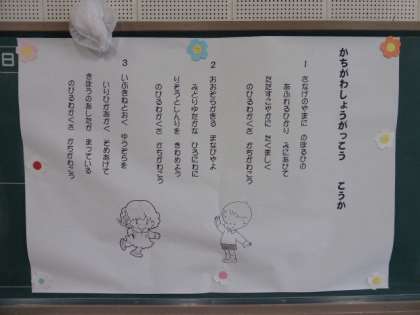 かちがわしょうがっこう　こうか
1　さなげのやまに　のぼるひの
あふれるひかり　みにあびて
ただすこやかに　たくましく
のびるわかくさ　かちがわこう
2　おおぞらかぎる　まなびやよ
みどりゆたかな　ひろにわに
りそうとしんりを　きわめよう
のびるわかくさ　かちがわこう
3　いぶきねとおく　ゆうぞらを
いりひがあかく　そめあげて
きぼうのあしたが　まっている
のびるわかくさ　かちがわこう